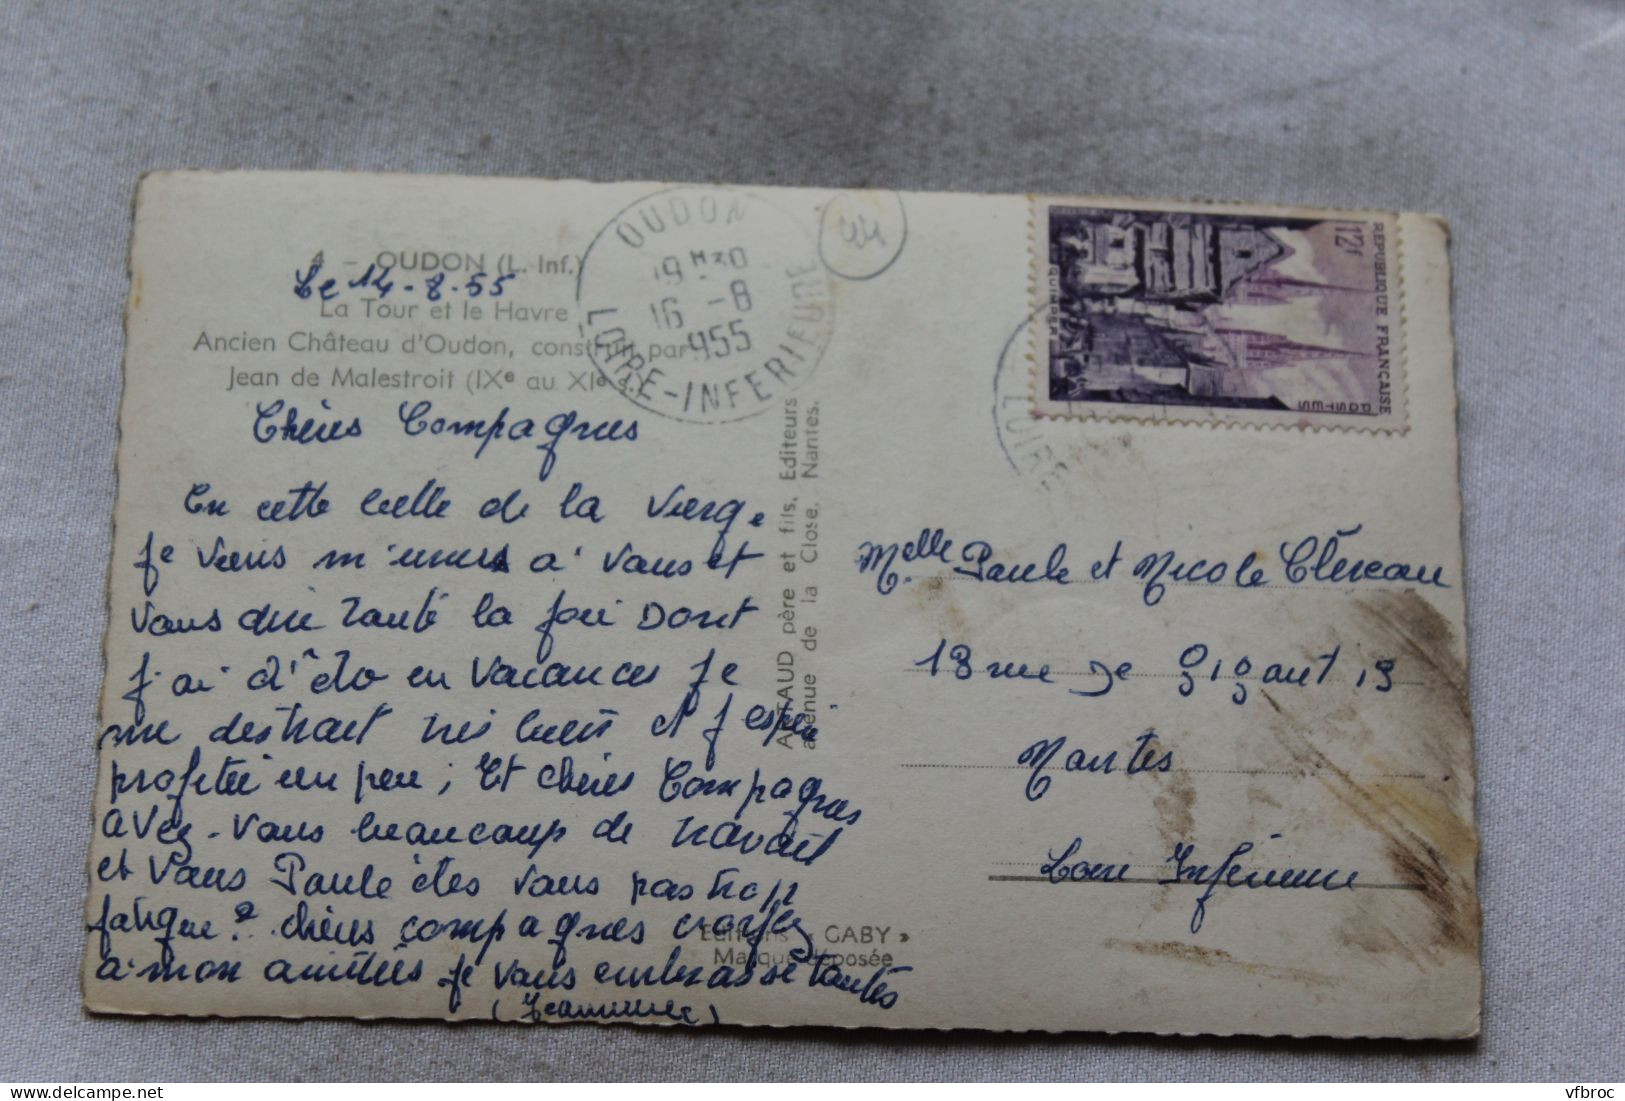 4 - OUDON (L.-Inf.)
Le 14-8-55
La Tour et le Havre
Ancien Château d'Oudon, construit par
Jean de Malestroit (IXe au XIe s.)
OUDON
16 -8
1955
LOIRE-INFERIEURE
44
RÉPUBLIQUE FRANÇAISE
12f
POSTES
QUIMPER
LOIRE
Chères Compagnes
En cette belle de la Vierge
je viens m'unir à vous et
vous dire toute la joie Dont
j'ai d'être en vacances je
me distrait très bien et j'espère
profiter un peu ; Et chères Compagnes
avez-vous beaucoup de travail
et vous Paule êtes vous pas trop
fatigue? chères compagnes croyez
à mon amitiés je vous embrasse toutes
(Jeannine)
ARTAUD père et fils, Editeurs
avenue de la Close, Nantes.
Editions « GABY »
Marque déposée
Melle Paule et Nicole Cléreau
13 rue De Gigant 13
Nantes
Loire Inférieure
vfbroc